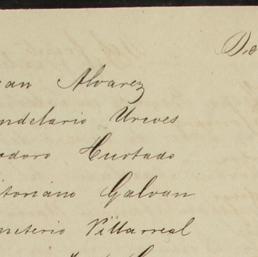 De
uan Alvarez
ndelario Ureves
odoro Hurtado
itoriano Galvan
meterio Villarreal